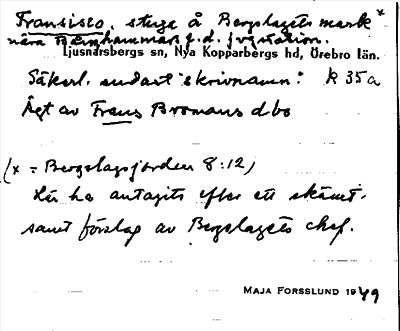 Fransisco, stuga å Bergslagets mark x
nära Bånghammars f.d. jvgstation.
Ljusnarsbergs sn, Nya Kopparbergs hd, Örebro län.
Säkerl. endast "skrivnamn". k 35a
Ägt av Frans Bromans dbo
(x = Bergslagsjorden 8:12)
Lär ha antagits efter ett skämt-
samt förslag av Bergslagets chef.
MAJA FORSSLUND 1949